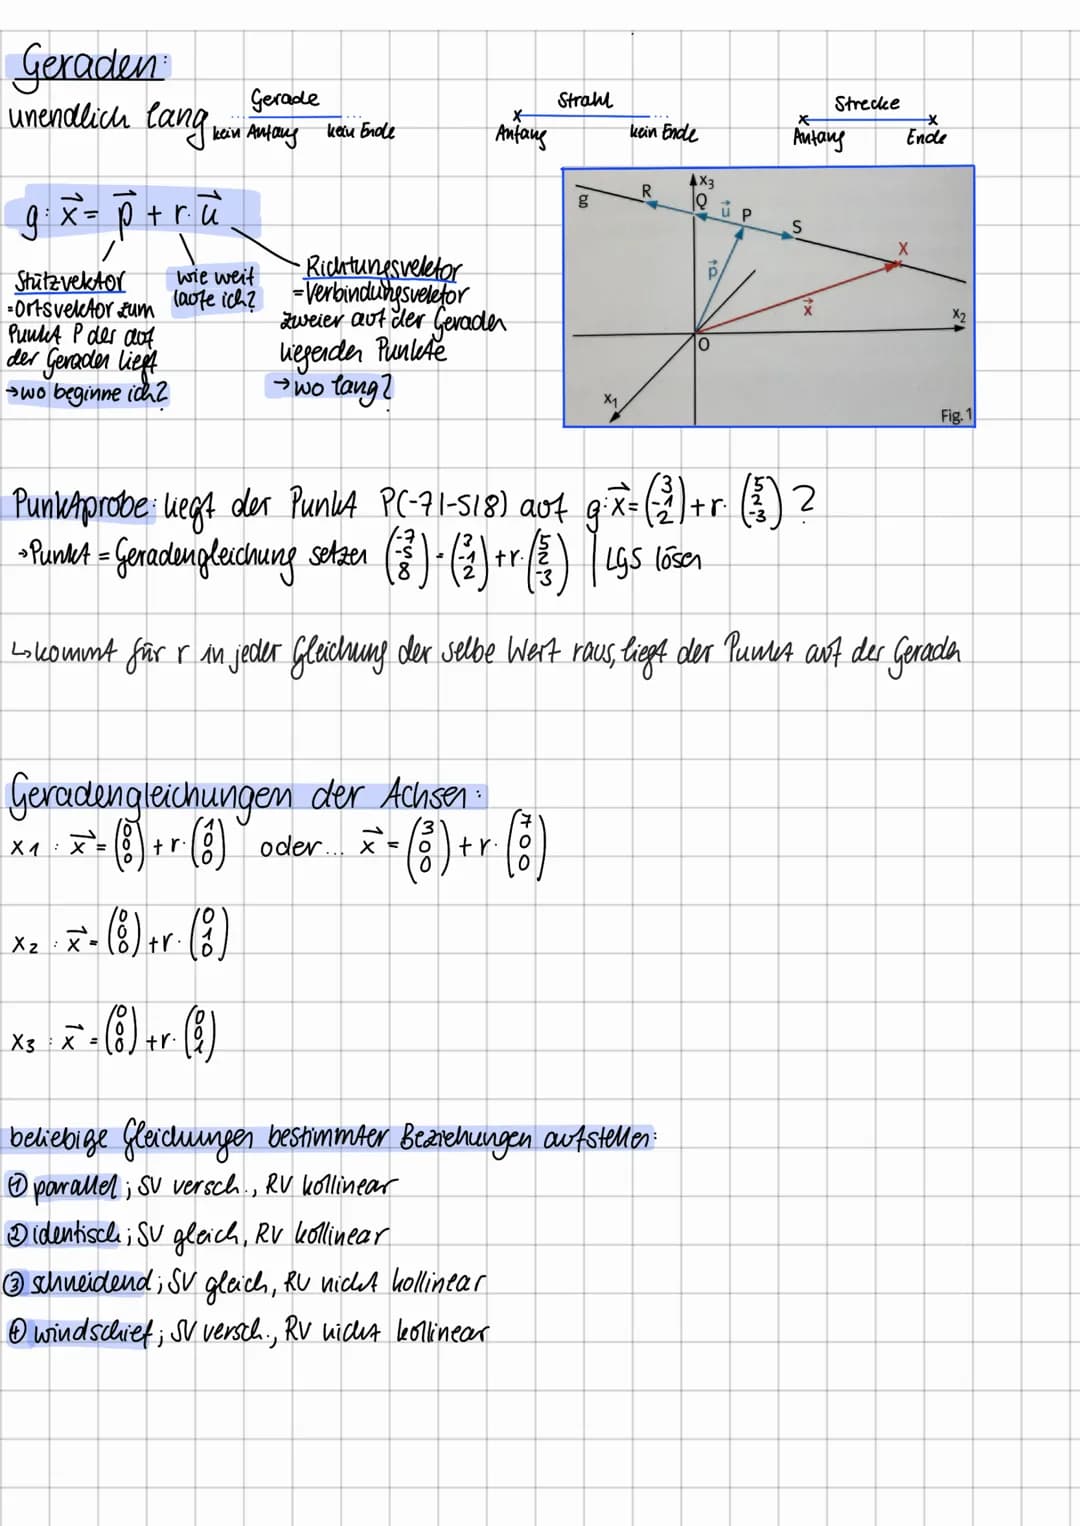 Geraden:
unendlich lang
Gerade
kein Anfang kein Ende
Strahl
Anfang kein Ende
Strecke
Anfang Ende
g: x⃗ = p⃗ + r · u⃗
Stützvektor
=Ortsvektor zum
Punkt P der auf
der Geraden liegt
→wo beginne ich?
wie weit
laufe ich?
Richtungsvektor
=Verbindungsvektor
zweier auf der Geraden
liegender Punkte
→wo lang?
g R x₃ Q u⃗ P S X
p⃗ x⃗ x₂
O
x₁
Fig. 1
Punktprobe: liegt der Punkt P(-7|-5|8) auf g: x⃗ = (3 -1 2) + r · (5 2 -3) ?
→Punkt = Geradengleichung setzen (-7 -5 8) = (3 -1 2) + r · (5 2 -3) | LGS lösen
↳kommt für r in jeder Gleichung der selbe Wert raus, liegt der Punkt auf der Geraden
Geradengleichungen der Achsen:
x1 : x⃗ = (0 0 0) + r · (1 0 0) oder... x⃗ = (3 0 0) + r · (7 0 0)
x2 : x⃗ = (0 0 0) + r · (0 1 0)
x3 : x⃗ = (0 0 0) + r · (0 0 1)
beliebige Gleichungen bestimmter Beziehungen aufstellen:
① parallel ; SV versch., RV kollinear
② identisch ; SV gleich, RV kollinear
③ schneidend ; SV gleich, RV nicht kollinear
④ windschief ; SV versch., RV nicht kollinear